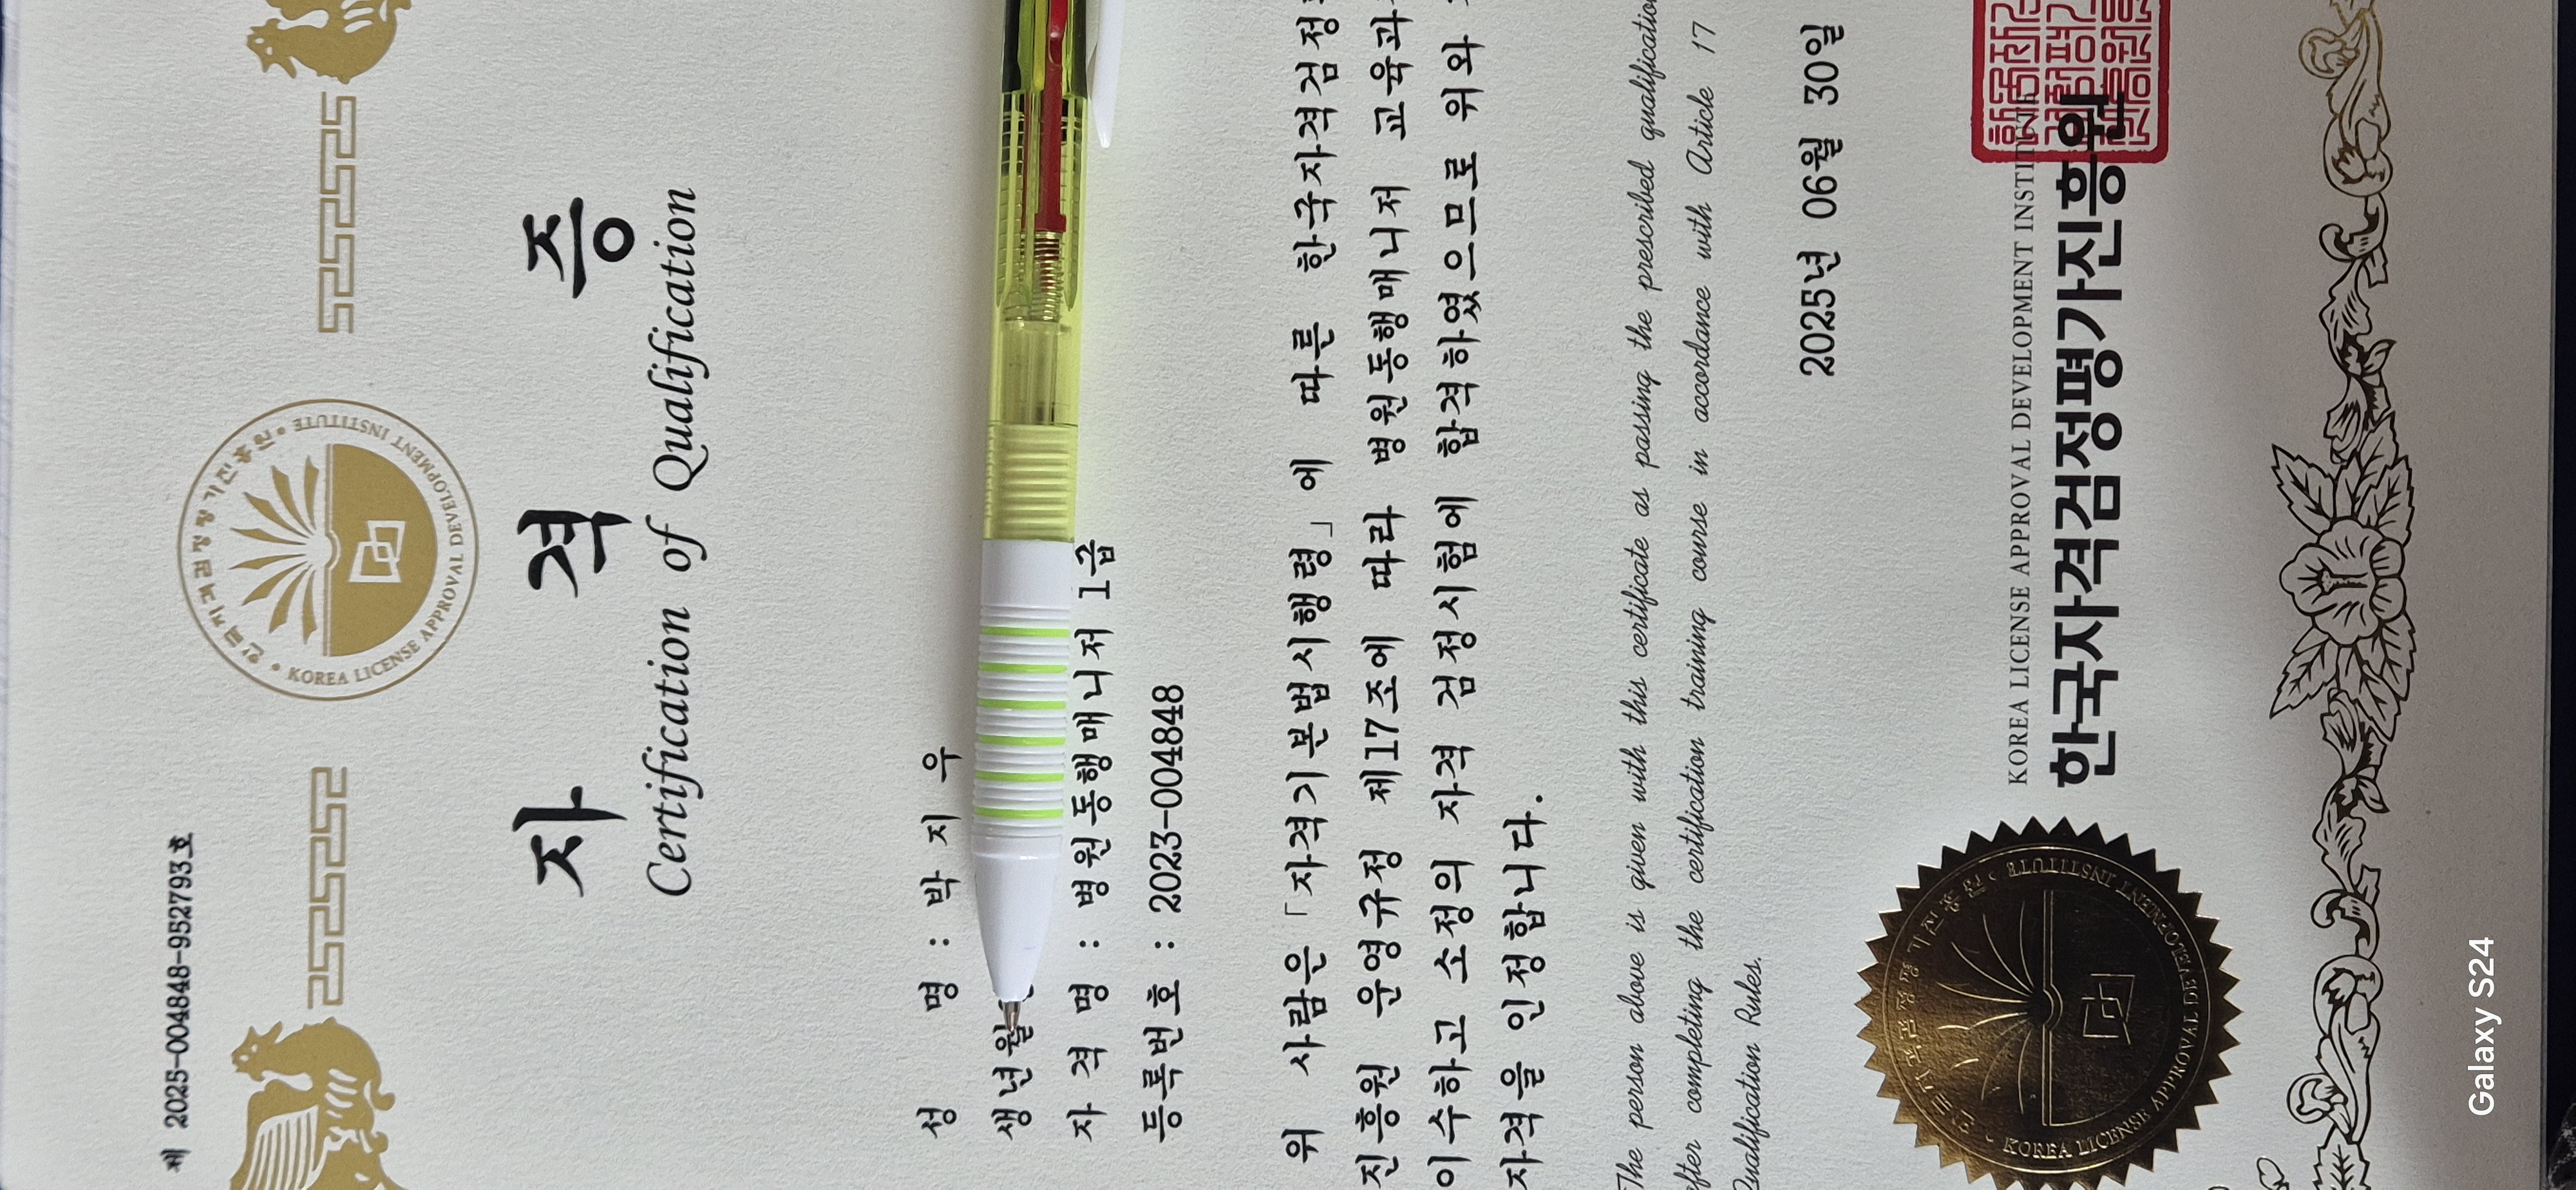 제 2025-004848-952793호
한국자격검정평가진흥원 • KOREA LICENSE APPROVAL DEVELOPMENT INSTITUTE •
자 격 증
Certification of Qualification
성 명 : 박 지 우
생년월
자 격 명 : 병원동행매니저 1급
등록번호 : 2023-004848
위 사람은 「자격기본법시행령」에 따른 한국자격검정
진흥원 운영규정 제17조에 따라 병원동행매니저 교육과
이수하고 소정의 자격 검정시험에 합격하였으므로 위와
자격을 인정합니다.
The person above is given with this certificate as passing the prescribed qualification
after completing the certification training course in accordance with Article 17
Qualification Rules.
2025년 06월 30일
KOREA LICENSE APPROVAL DEVELOPMENT INSTITUTE
한국자격검정평가진흥원
한국자격검정평가진흥원 • KOREA LICENSE APPROVAL DEVELOPMENT INSTITUTE •
Galaxy S24